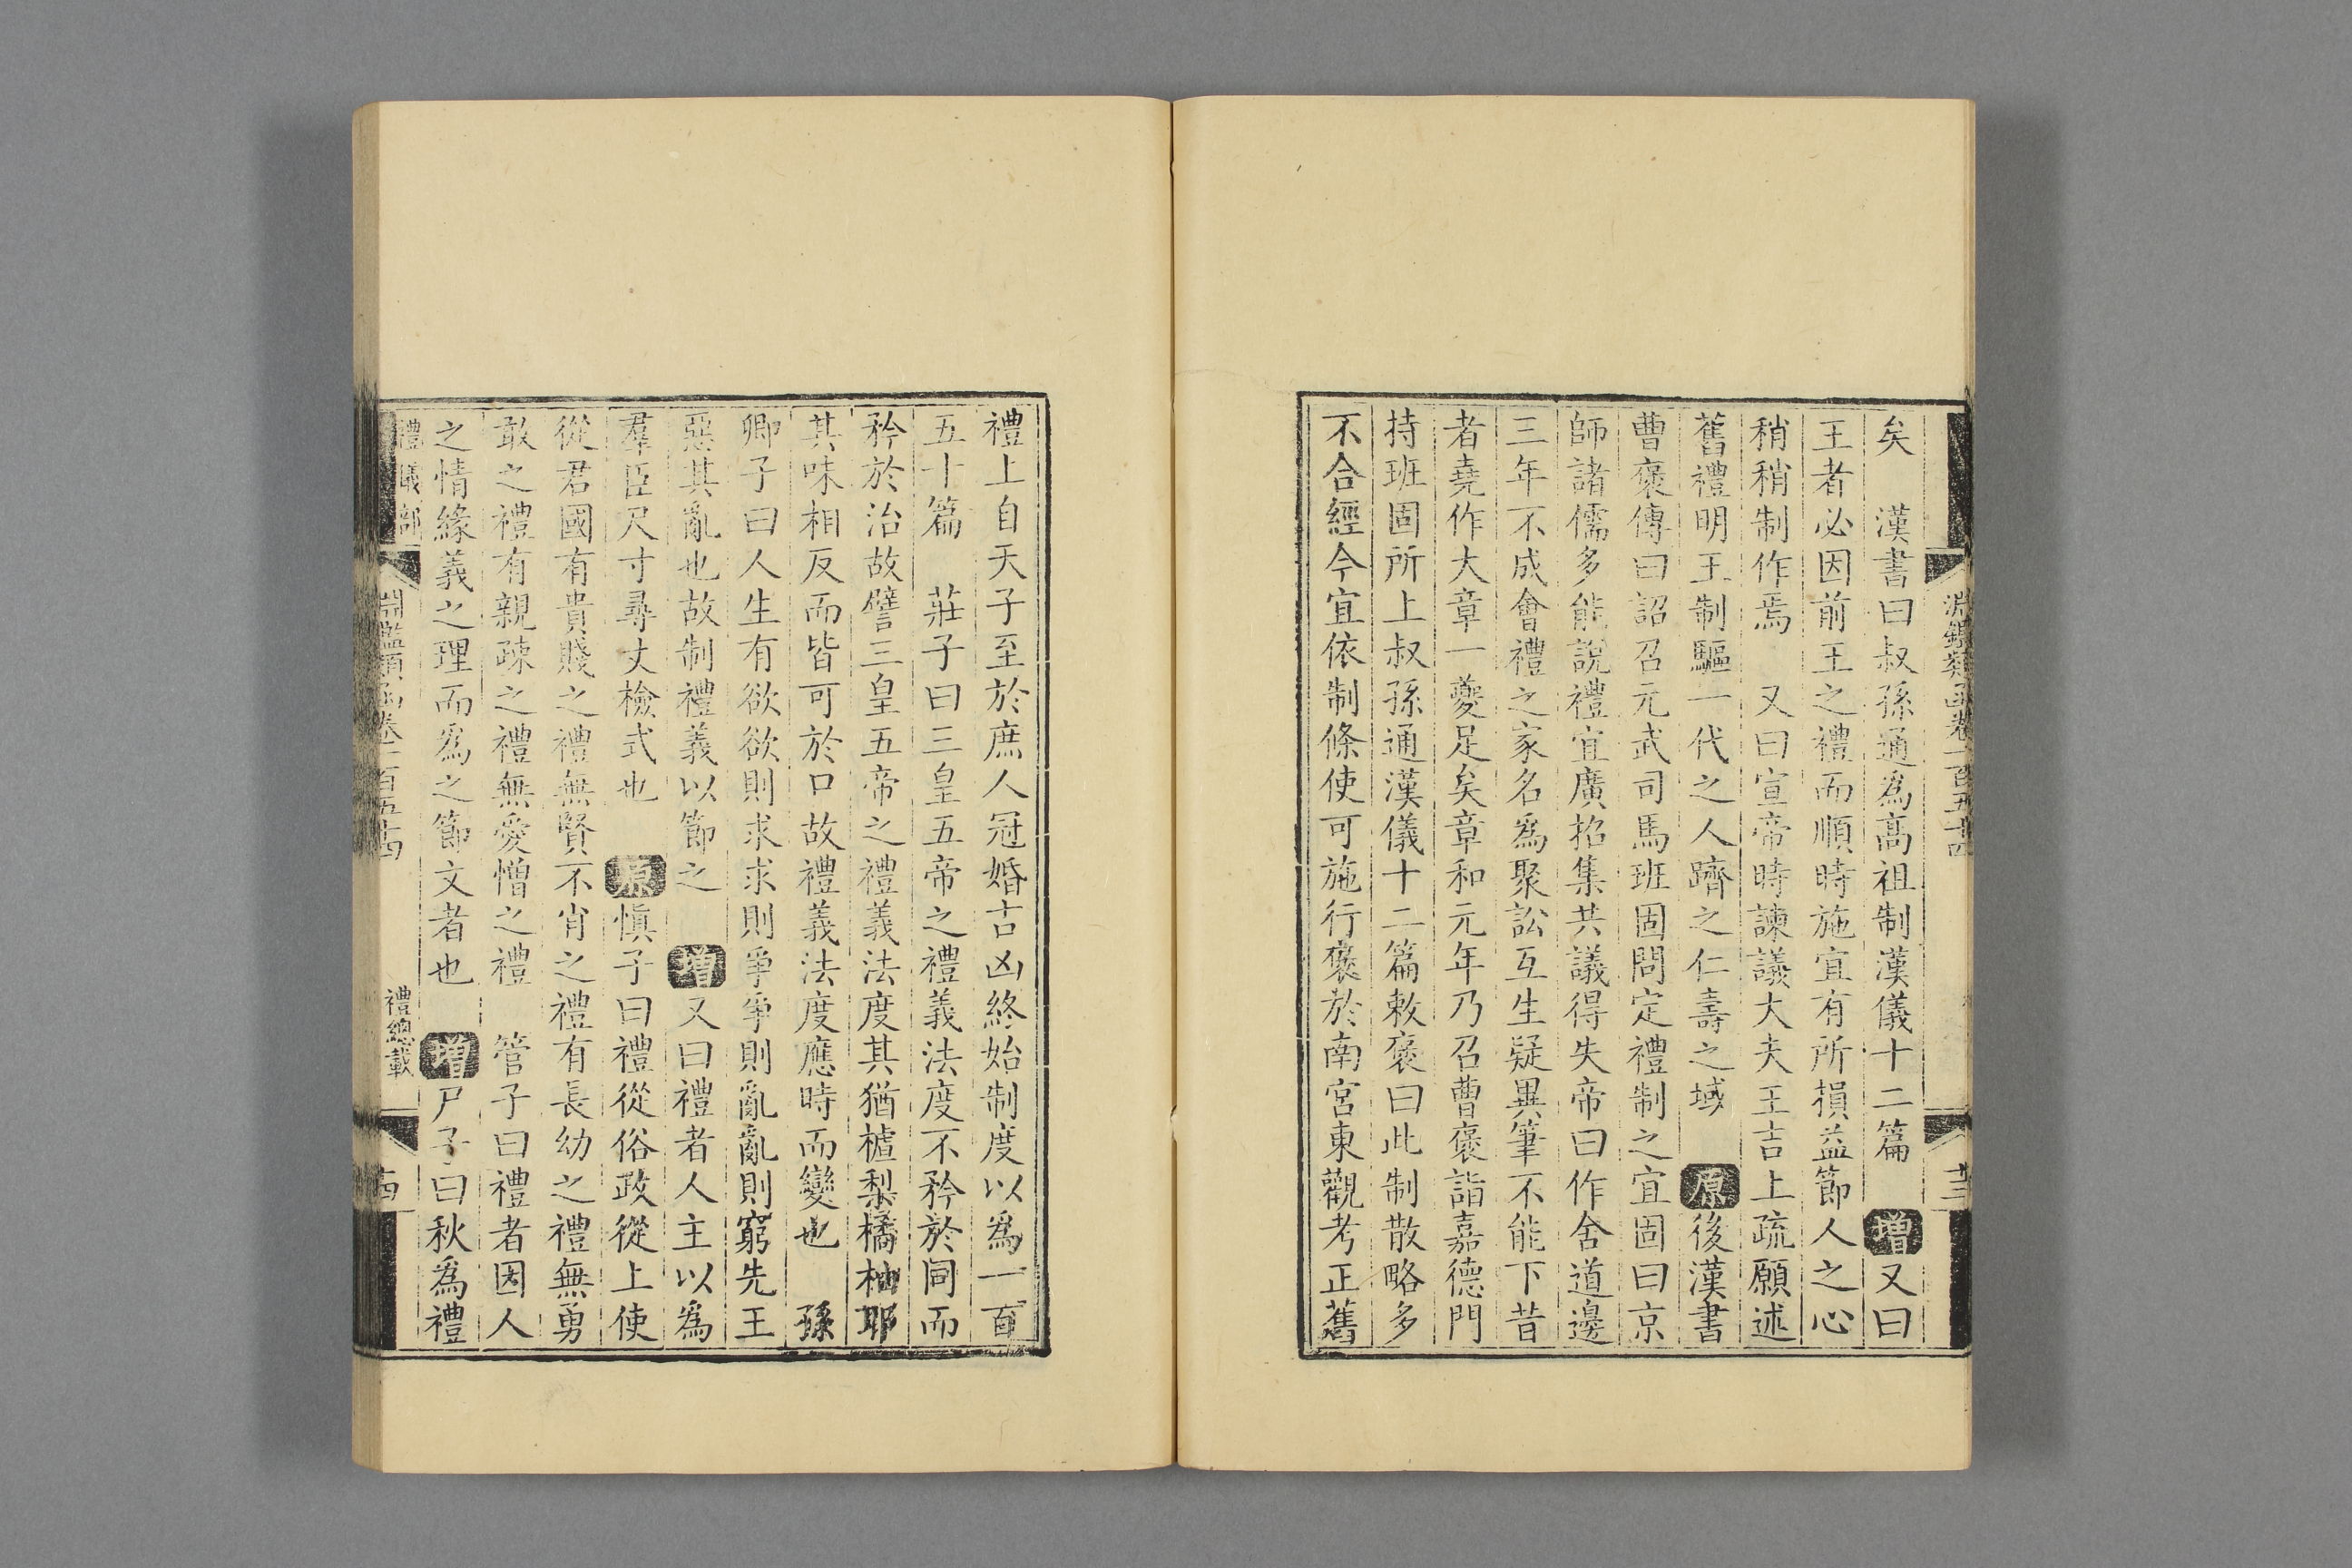 矣　漢書曰叔孫通爲髙祖制漢儀十二篇　增又曰
王者必因前王之禮而順時施宜有所損益節人之心
稍稍制作焉　又曰宣帝時諫議大夫王吉上疏願述
舊禮明王制驅一代之人躋之仁壽之域　原後漢書
曹襃傳曰詔召元武司馬班固問定禮制之宜固曰京
師諸儒多能說禮宜廣招集共議得失帝曰作舍道邊
三年不成會禮之家名爲聚訟互生疑異筆不能下昔
者堯作大章一夔足矣章和元年乃召曹襃詣嘉德門
持班固所上叔孫通漢儀十二篇敕襃曰此制散略多
不合經今宜依制條使可施行襃於南宮東觀考正舊
禮上自天子至於庶人冠婚吉凶終始制度以爲一百
五十篇　莊子曰三皇五帝之禮義法度不矜於同而
矜於治故譬三皇五帝之禮義法度其猶樝梨橘柚耶
其味相反而皆可於口故禮義法度應時而變也　孫
卿子曰人生有欲欲則求求則爭爭則亂亂則窮先王
惡其亂也故制禮義以節之　增又曰禮者人主以爲
羣臣尺寸尋丈檢式也　原慎子曰禮從俗政從上使
從君國有貴賤之禮無賢不肖之禮有長幼之禮無勇
敢之禮有親疎之禮無愛憎之禮　管子曰禮者因人
之情緣義之理而爲之節文者也　增尸子曰秋爲禮
禮儀部　淵鑑類函卷一百五十四　禮總載　十四